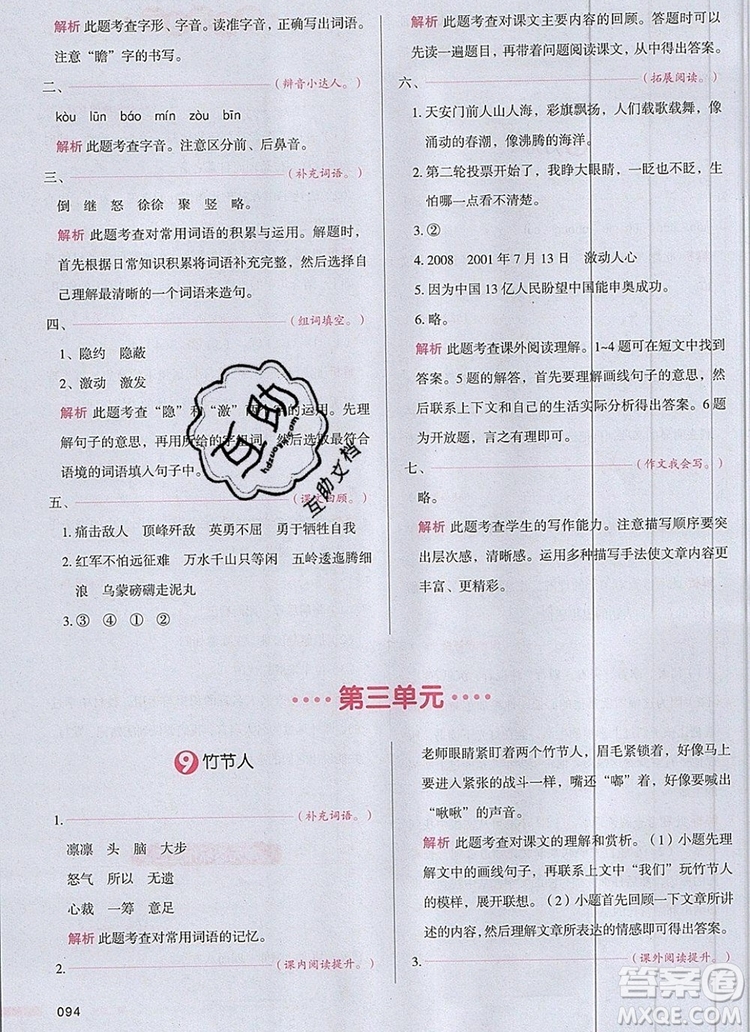 解析 此题考查字形、字音。读准字音、写对词语。
注意“瞻”字的书写。
二、（辩音小达人。）
kòu lūn báo mín zòu bīn
解析 此题考查字音。注意区分前、后鼻音。
三、（补充词语。）
倒 继 怒 徐徐 聚 竖 略。
解析 此题考查对常用词语的积累与运用。解题时，
首先根据日常知识积累将词语补充完整，然后选自
己理解最清晰的一个词语来造句。
四、（组词填空。）
1、隐约 隐蔽
2、激动 激发
解析 此题考查“隐”和“激”的运用。先理
解句子的意思，再用所给的字组词，然后选取最符合
语境的词语填入句子中。
五、（课文回顾。）
1. 痛击敌人 顶峰歼敌 英勇不屈 勇于牺牲自我
2. 红军不怕远征难 万水千山只等闲 五岭逶迤腾细
浪 乌蒙磅礴走泥丸
3. ③ ④ ① ②
解析 此题考查对课文主要内容的回顾。可以
先读一遍题目，再带着问题阅读课文，从中得出答案。
六、（拓展阅读。）
1. 天安门前人山人海，彩旗飘扬，人们载歌载舞，像
涌动的春潮，像沸腾的海洋。
2. 第二轮投票开始了，我睁大眼睛，一眨也不眨，生
怕哪一点看不见。
3. ②
4. 2008 2001 年 7 月 13 日 激动人心
5. 因为中国 13 亿人民盼望中国能申奥成功。
6. 略。
解析 此题考查课外阅读理解。1~4 题可在短文中找到
答案。5 题的解答，首先要理解画线句子的意思，
然后联系上下文和自己的生活实际分析得出答案。6 题
为开放性试题，言之有理即可。
七、（作文我会写。）
略。
解析 此题考查学生的写作能力。注意描写顺序要突
出层次感，清晰感。运用多种描写手法使文章内容更
丰富、更精彩。
第三单元
9 竹节人
1.（补充词语。）
凛凛 头 脑 大步
怒气 所以 无遗
心裁 一筹 意足
解析 此题考查对常用词语的记忆。
2.（课内阅读提升。）
老师眼睛紧盯着两个竹节人，眉毛紧锁着，好像马上
要进入紧张的战斗一样，嘴还在“嘟”着，好像要喊出
“啾啾”的声音。
解析 此题考查对课文的理解和赏析。（1）小题先理
解文中的画线句子，再联系上下文中“我们”玩竹节人
的模样，展开联想。（2）小题首先回顾一下文章所含
的感情，然后结合人物的情感即可得出答案。
3.（课外阅读提升。）
094
互助
hdzuoye.com
互助文档
答案圈
MXQE.COM